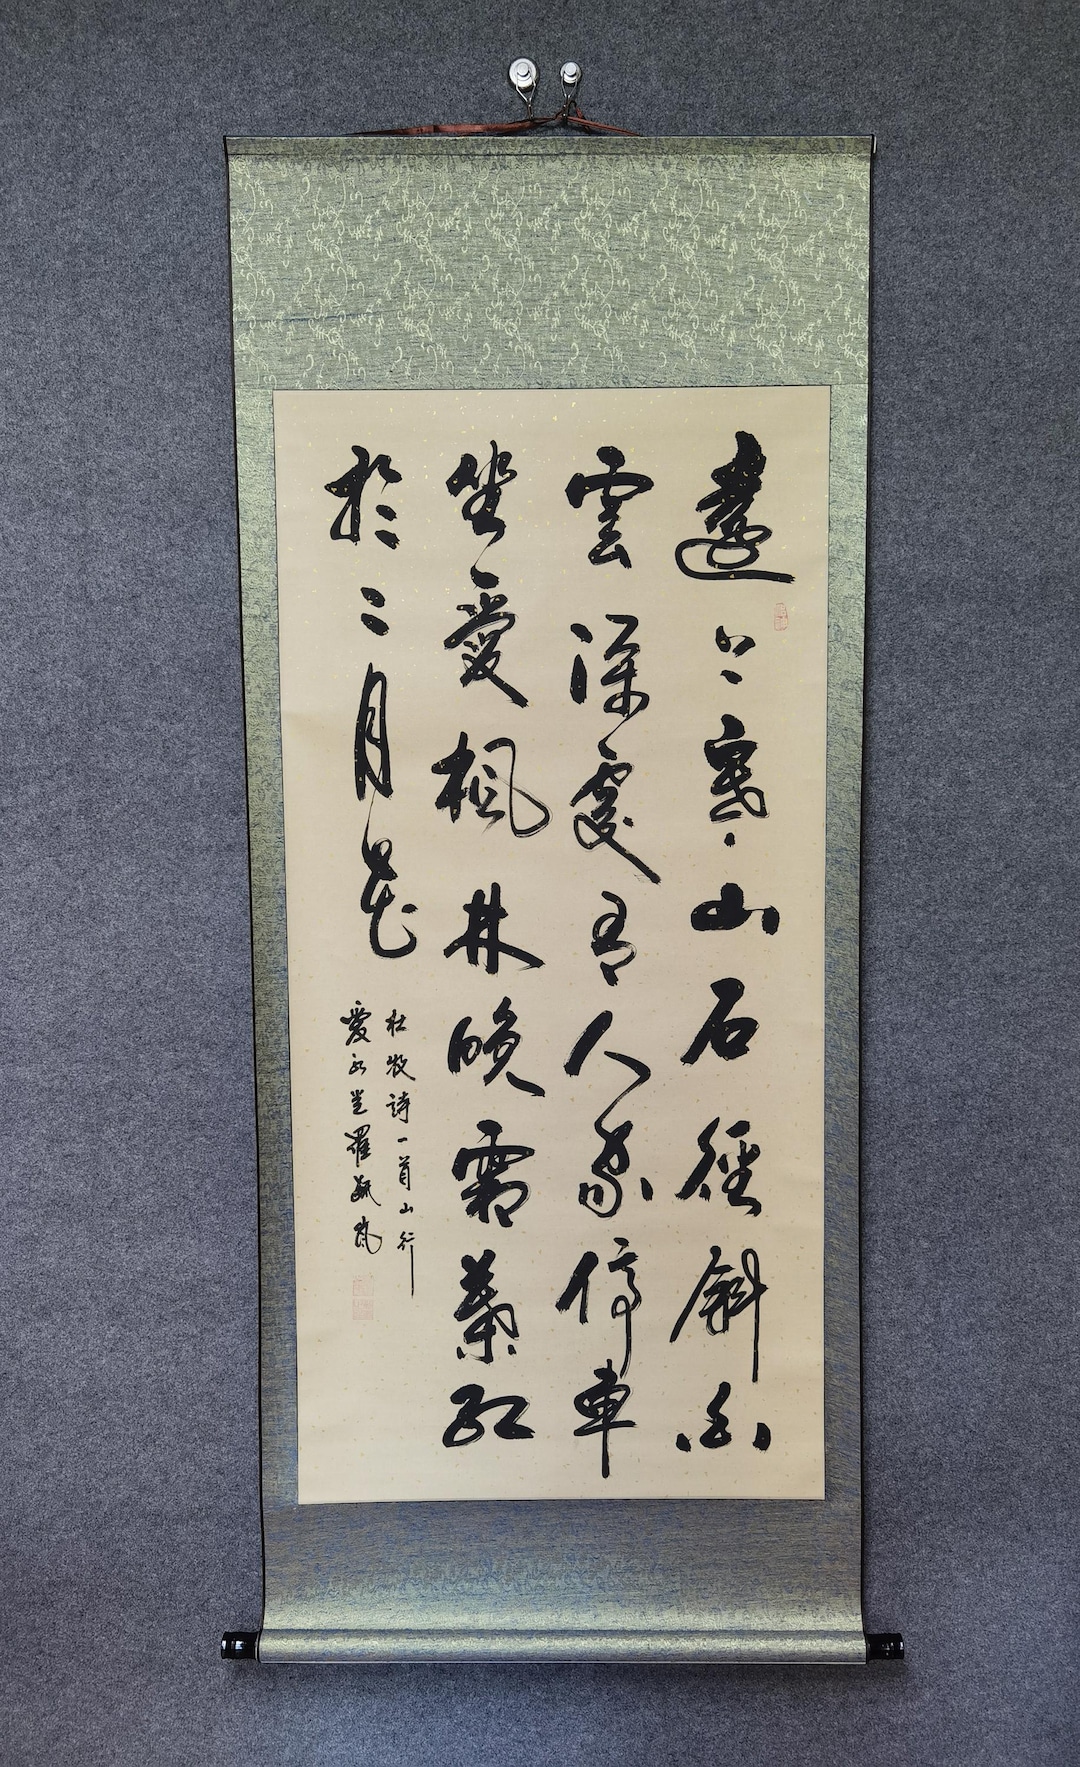 遠上寒山石徑斜白
雲深處有人家停車
坐愛楓林晚霜葉紅
於二月花
杜牧詩一首山行
愛 羅